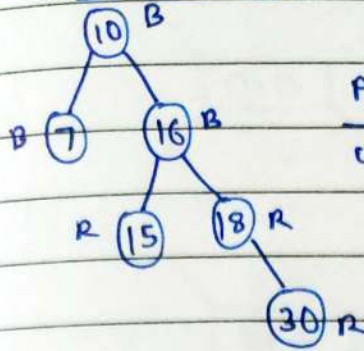 10 B
B 7 16 B
R 15 18 R
30 R